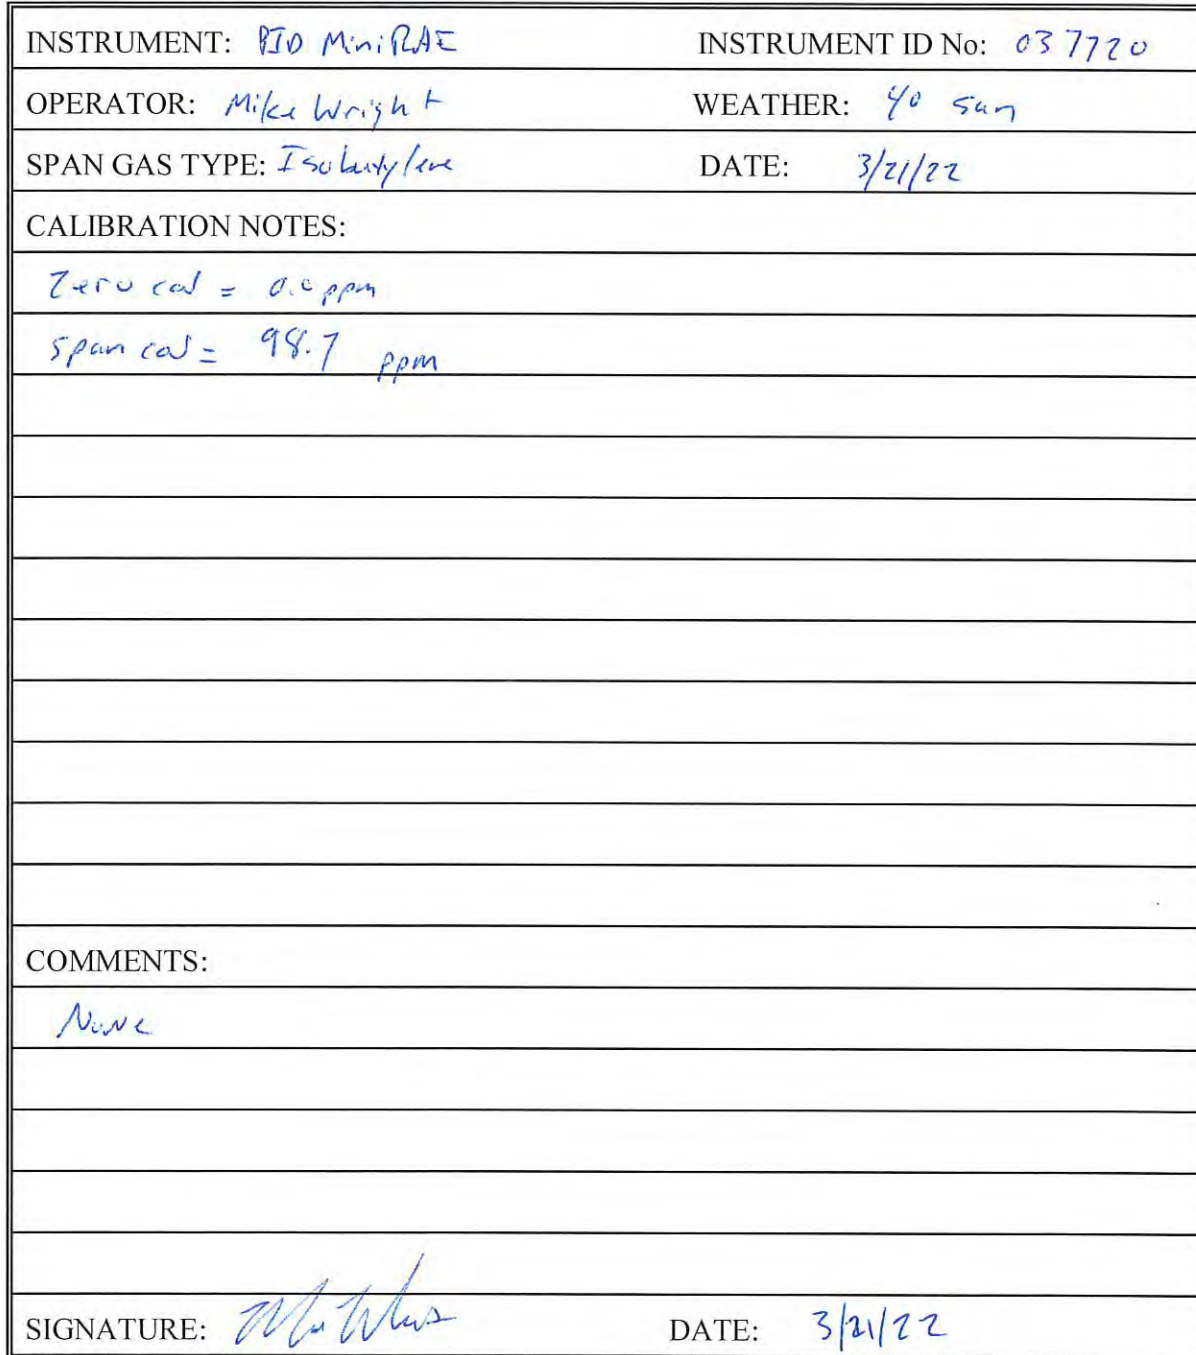 INSTRUMENT: PID MiniRAE INSTRUMENT ID No: 037720
OPERATOR: Mike Wright WEATHER: 40 sun
SPAN GAS TYPE: Isobutylene DATE: 3/21/22
CALIBRATION NOTES:
Zero cal = 0.0 ppm
span cal = 98.7 ppm
COMMENTS:
None
SIGNATURE: DATE: 3/21/22